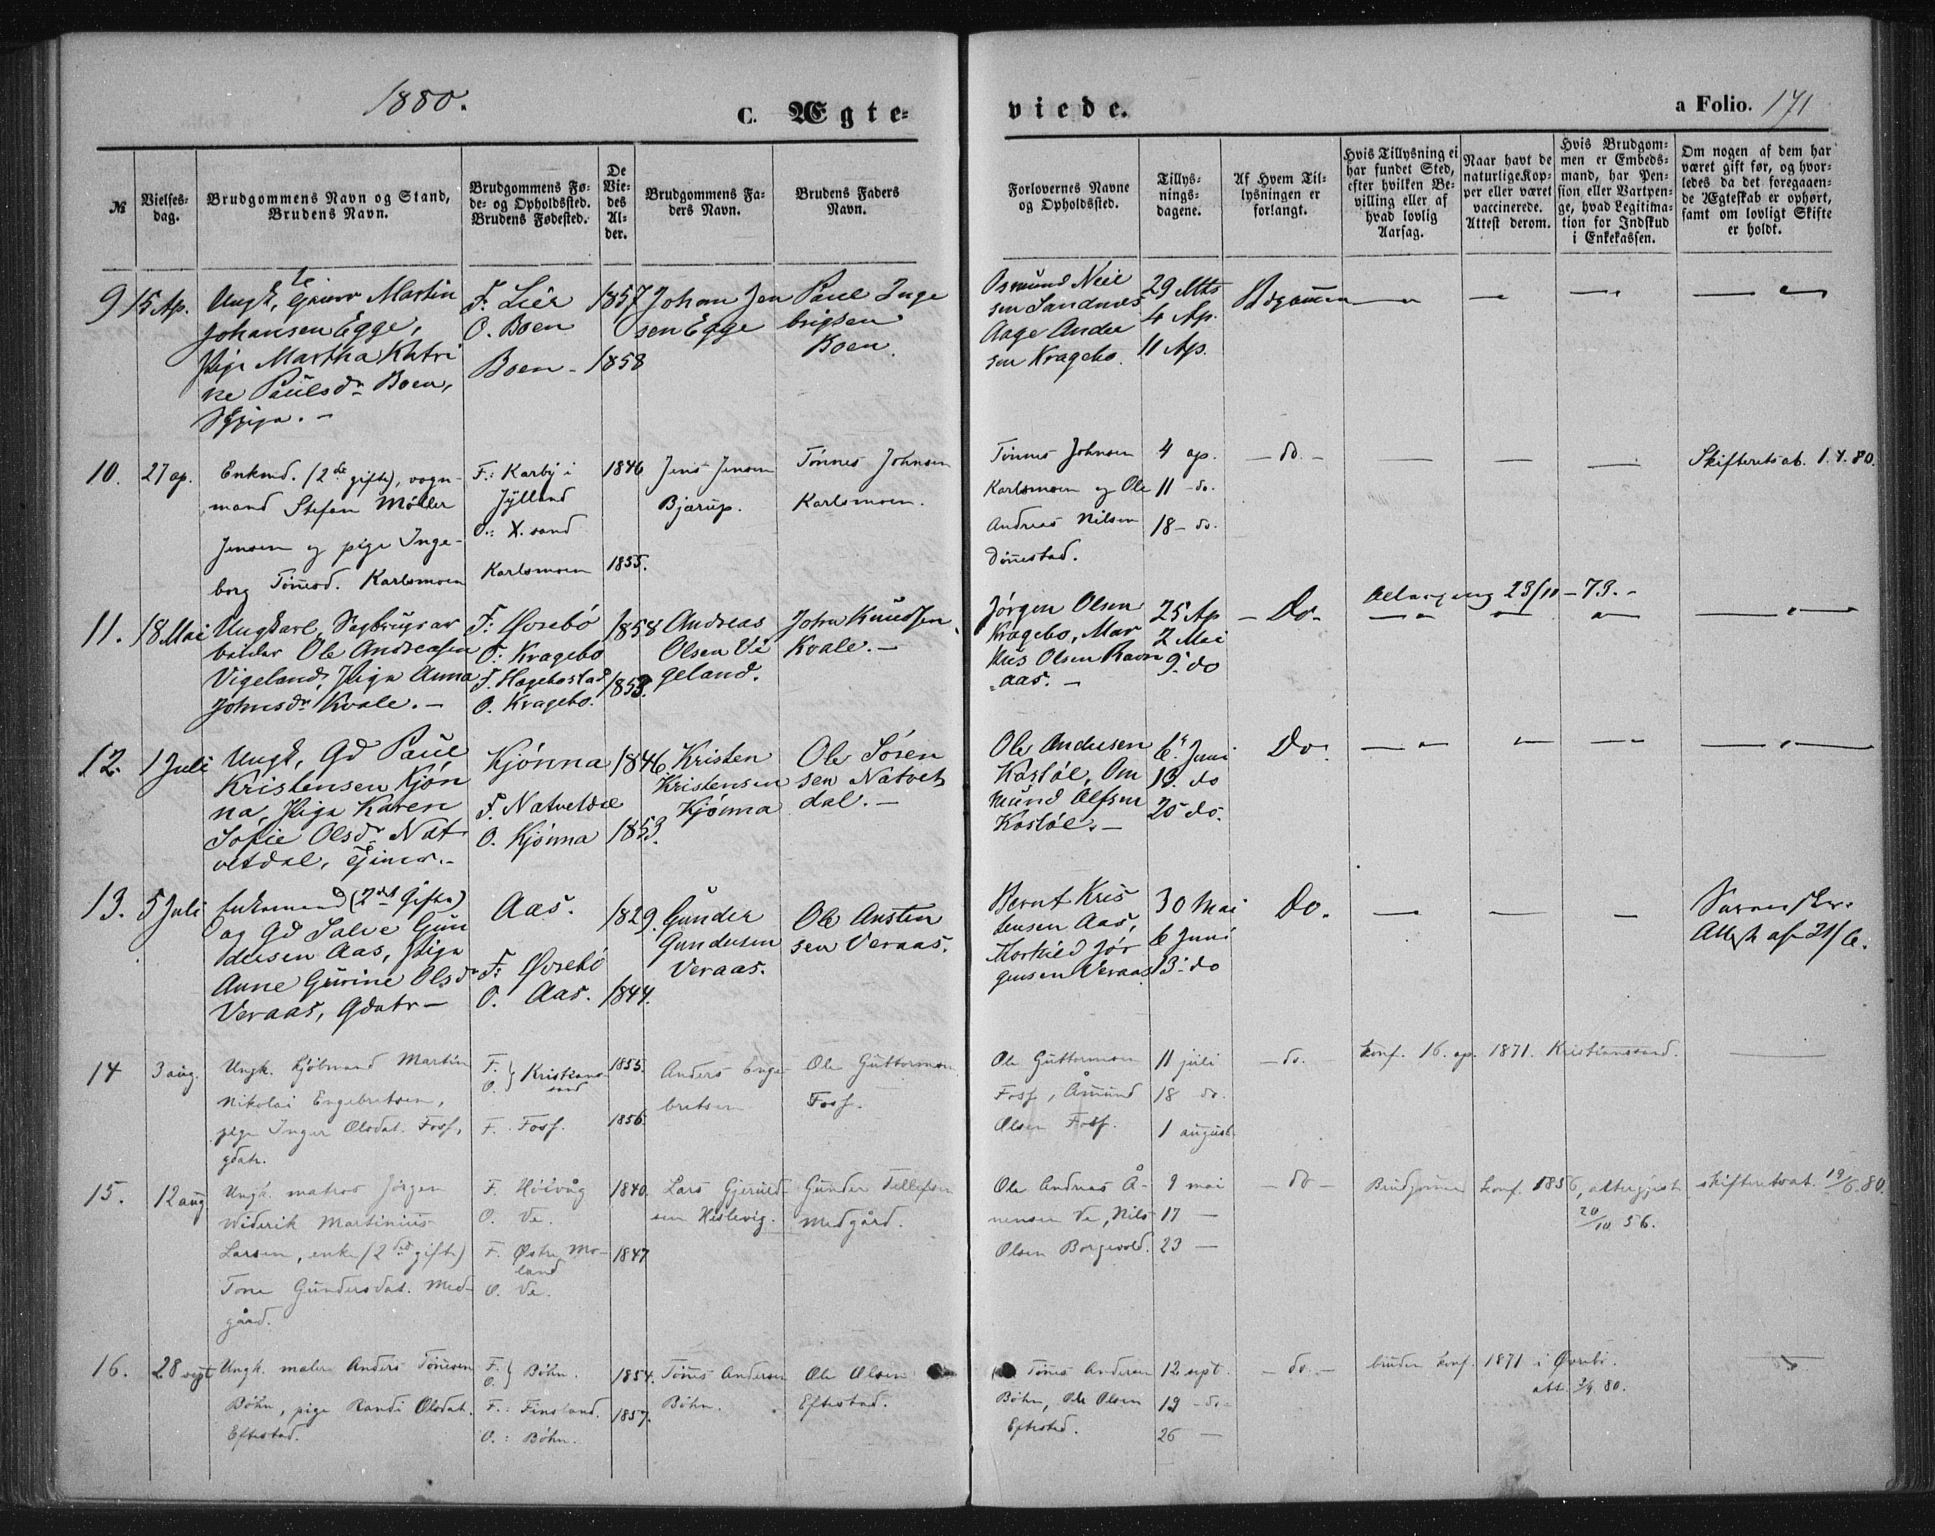 1880.
C. Ægte-
viede.
a Folio. 171
№
Vielses-
dag.
Brudgommens Navn og Stand,
Brudens Navn.
Brudgommens Fø-
de- og Opholdssted.
Brudens Fødested.
De
Vie-
des
Al-
der.
Brudgommens Fa-
ders Navn.
Brudens Faders
Navn.
Forlovernes Navne
og Opholdssted.
Tillys-
nings-
dagene.
Af Hvem Til-
lysningen er
forlangt.
Hvis Tillysning ei
har fundet Sted,
efter hvilken Be-
villing eller af
hvad lovlig
Aarsag.
Naar havt de
naturlige Kop-
per eller været
vaccinerede.
Attest derom.
Hvis Brudgom-
men er Embeds-
mand, har Pen-
sion eller Vartpen-
ge, hvad Legitima-
tion for Indskud
i Enkekassen.
Om nogen af dem har
været gift før, og hvor-
ledes da det foregaaen-
de Ægteskab er ophørt,
samt om lovligt Skifte
er holdt.
9
15 Ap.
Ungk, Martin
Johansen Egge,
Pige Martha Katri
ne Paulsdr Boen,
F. Lier
O. Boen
Boen -
1857
1858
Johan Jen
sen Egge
Paul Inge
brigtsen
Boen.
Osmund Neil
sen Sandnes
Aage Ander
sen Kragebo.
29 Mts
4 Ap.
11 Ap.
Bdgommen
10.
27 ap.
Enkmd. (2de gifte), vogn-
mand Stefan Møller
Jensen og pige Inge-
borg Tønnesd. Karlsmoen
F.: Karby i
Jylland
O.: X.sand
Karlsmoen
1846
1855.
Jens Jensen
Bjerup.
Tønnes Johnsen
Karlsmoen.
Tønnes Johnsen
Karlsmoen og Ole
Andreas Nilsen
Dønnestad.
4 ap.
11 - do.
18 - do.
- do. -
Skifteretsat. 1.4.80.
11.
18 Mai
Ungkarl, Sagbrugsar
beider Ole Andreasen
Vigeland, Pige Anna
Johnsdr Kvale. -
F: Øvrebö
O: Kragebo
F. Hægebostad
O. Kragebo.
1858
1853.
Andreas
Olsen Vi
geland.
John Knudsen
Kvale. -
Jørgen Olsen
Kragebo, Mar
kus Olsen Ravn
aas. -
25 Ap
2 Mai
9. do
- Do -
Altergang 23/11 - 73. -
12.
1 Juli
Ungk, Gd Paul
Kristensen Kjøn
na, Pige Karen
Sofie Olsdr Nat
vetdal,
Kjönna
F. Natvetdal
O. Kjönna
1846
1853.
Kristen
Kristensen
Kjønna
Ole Sören
sen Natvet
dal. -
Ole Andersen
Kostöl, Om
mund Olfsen
Kostöl. -
6. Juni
13. do
20 do.
Do.
13.
5 Juli
Enkemand (2det Gifte)
og Gd Salve Gun
dersen Aas, Pige
Anne Gurine Olsdr
Veraas, Gdatr -
Aas.
F: Øvrebö
O. Aas.
1829.
1844.
Gunder
Gundersen
Veraas.
Ole Ansten
sen Veraas.
Bernt Kris
tensen Aas,
Jör
gensen Veraas
30 Mai
6 Juni
13. do
Do.
Attest af 21/6.
14
3 aug.
Ungk. Kjöbmand Martin
Nikolai Engebretsen,
pige Inger Olsdat. Fosf,
gdatr.
F.
O.
Kristian-
sand
F. Fosf.
1855.
1856.
Anders Enge
bretsen
Ole Guttormsen
Fosf.
Ole Guttormsen
Fosf, Åmund
Olsen Fosf.
11 juli
18 do.
1 august.
- do.
konf. 16. ap. 1871. Kristianssand.
15.
12 aug
Ungk. matros Jörgen
Widerik Martinius
Larsen, enke (2det gifte)
Tone Gundersdat. Med-
gård.
F. Höivåg
O. Ve.
F. Østre Mo-
land
O. Ve.
1840.
1847
Lars Gjeruld-
sen Heslevig.
Gunder Tellefsen
Medgård.
Ole Andreas Å-
nensen Ve, Nils
Olsen Borgevold.
9 mai
17 -
23 -
- do -
Brudgommen konf. 1856, altergjest
20/10 56.
skifteretsat. 19/6.80.
16.
28 sept
Ungk. maler Anders Tönnesen
Böhn, pige Randi Olsdat.
Eftestad.
F.
O.
Böhn.
F.: Finsland.
O.: Böhn.
1854.
1857.
Tönnes Andersen
Böhn.
Ole Olsen
Eftestad.
Tönnes Andersen
Böhn, Ole Olsen
Eftestad.
12 sept.
19 - do -
26 -
- do. -
bruden konf. 1871 i Øvrebö.
att. 3/9. 80.